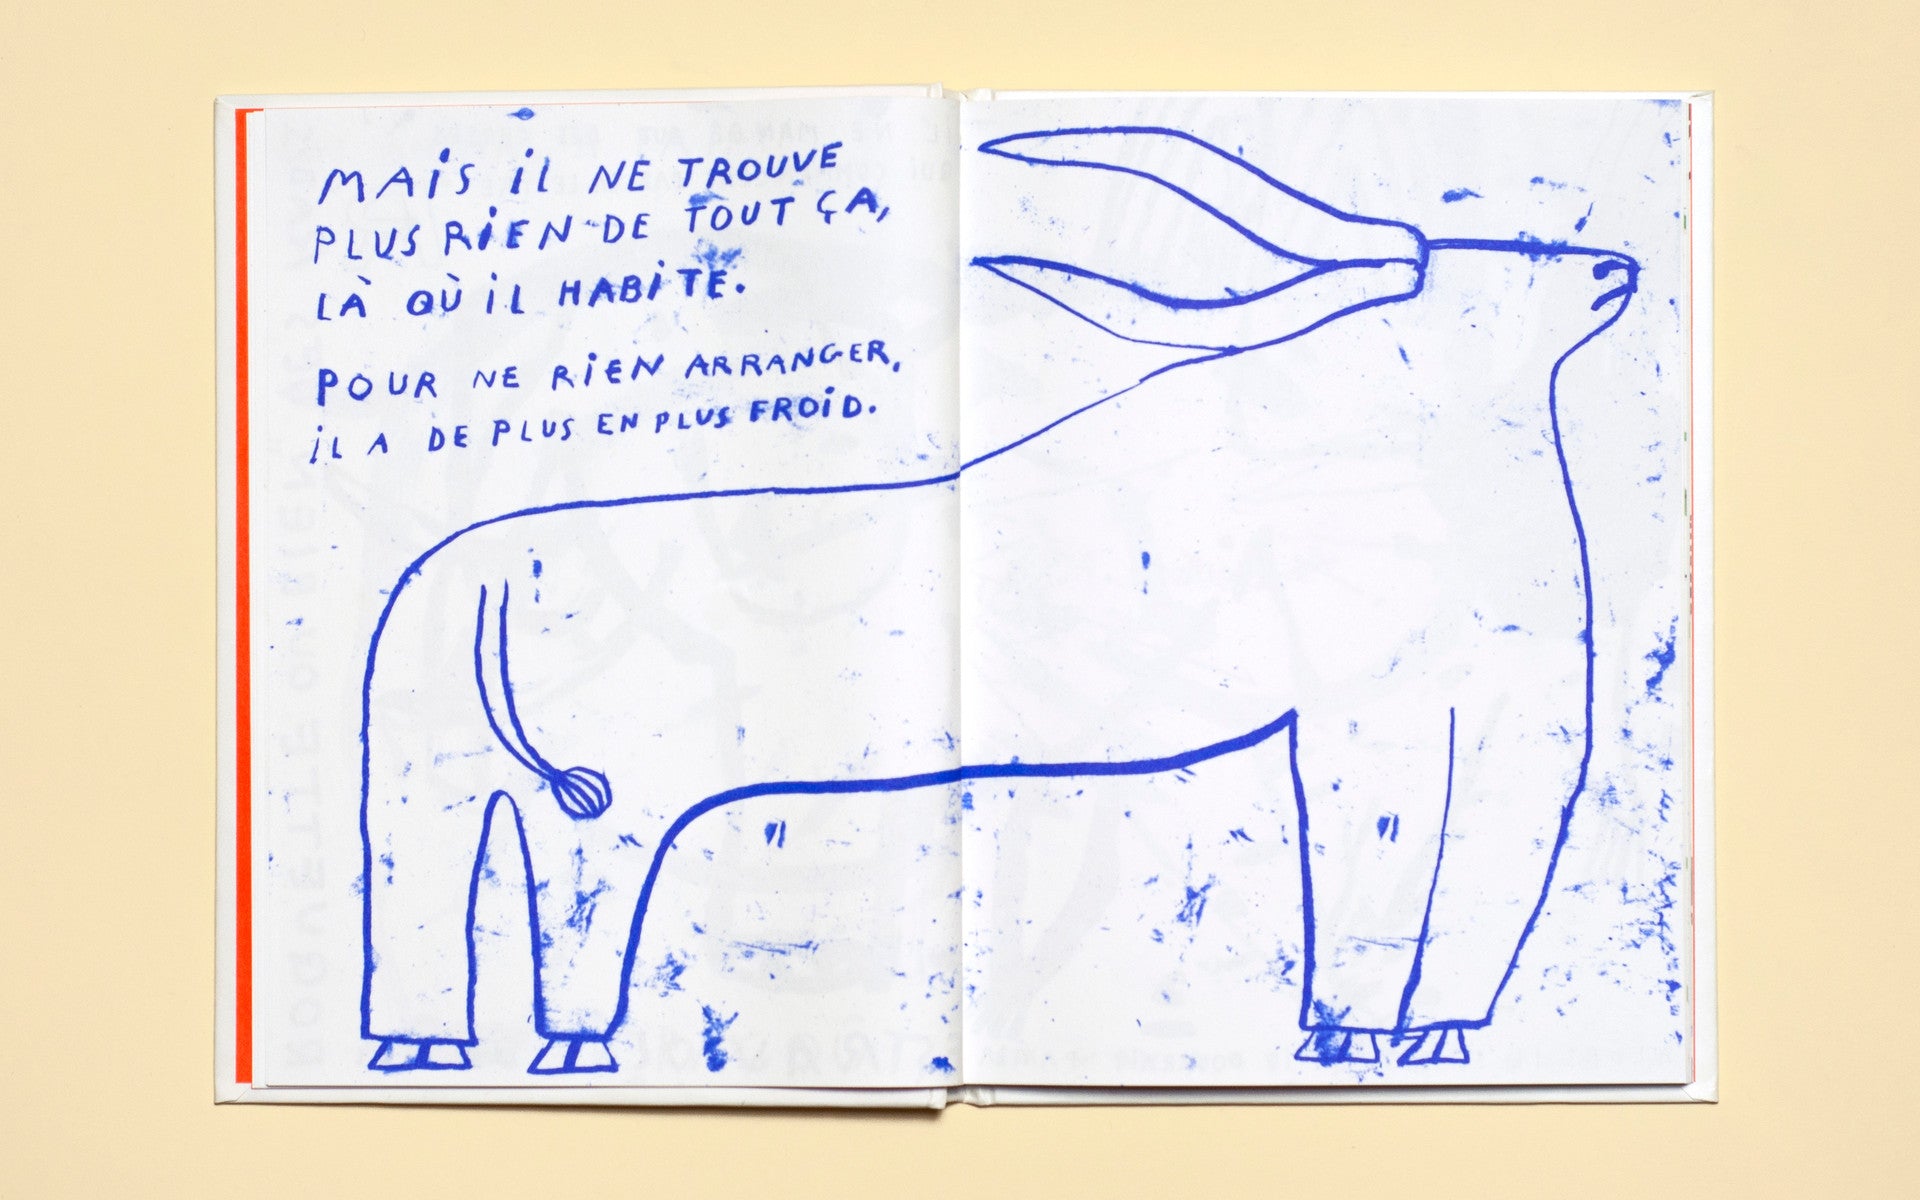 MAIS IL NE TROUVE
PLUS RIEN DE TOUT ÇA,
LÀ OÙ IL HABITE.
POUR NE RIEN ARRANGER,
IL A DE PLUS EN PLUS FROID.